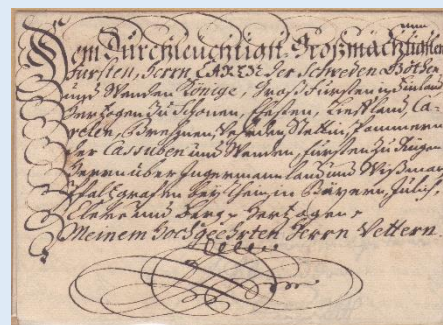 Dem Durchleuchtigst-Großmächtigsten
Fürsten, Herrn CARL der Schweden, Gothen
und Wenden Könige, GroßFürsten in Finland
Hertzogen zu Schonen, Ehsten, Lieffland, Ca-
relen, Brehmen, Vehrden, Stetin, Pommern
der Cassuben und Wenden, Fürsten zu Rügen
Herrn über Ingermannland und Wißmar
Pfaltzgrafen bey Rhein, in Bäyern, Jülich,
Cleve und Berg, Hertzogen,
Meinem Hochgeehrten Herrn Vettern